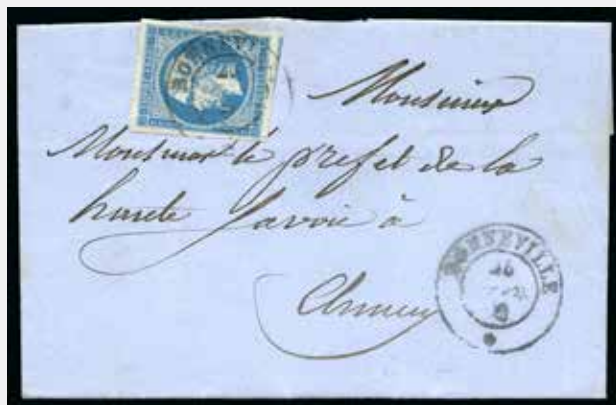 BONNEV
Monsieur
Monsieur le préfet de la
haute Savoie à
Annecy
BONNEVILLE